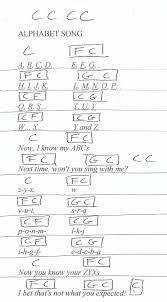 C C C C
ALPHABET SONG
C F C
A, B, C, D, E, F, G...
F C G C
H, I, J, K, L, M, N, O, P...
C F C G
Q, R, S... T, U, V
C F C G
W... X... Y and Z
C F C
Now, I know my ABCs
F C G C C C
Next time, won't you sing with me?
C F C
z-y-x, w
F C G C
v-u-t, s-r-q
C F C G
p-o-n-m- l-k-j
C F C G
i-h-g-f- e-d-c-b-a
C F C
Now you know your ZYXs
F C G C
I bet that's not what you expected!